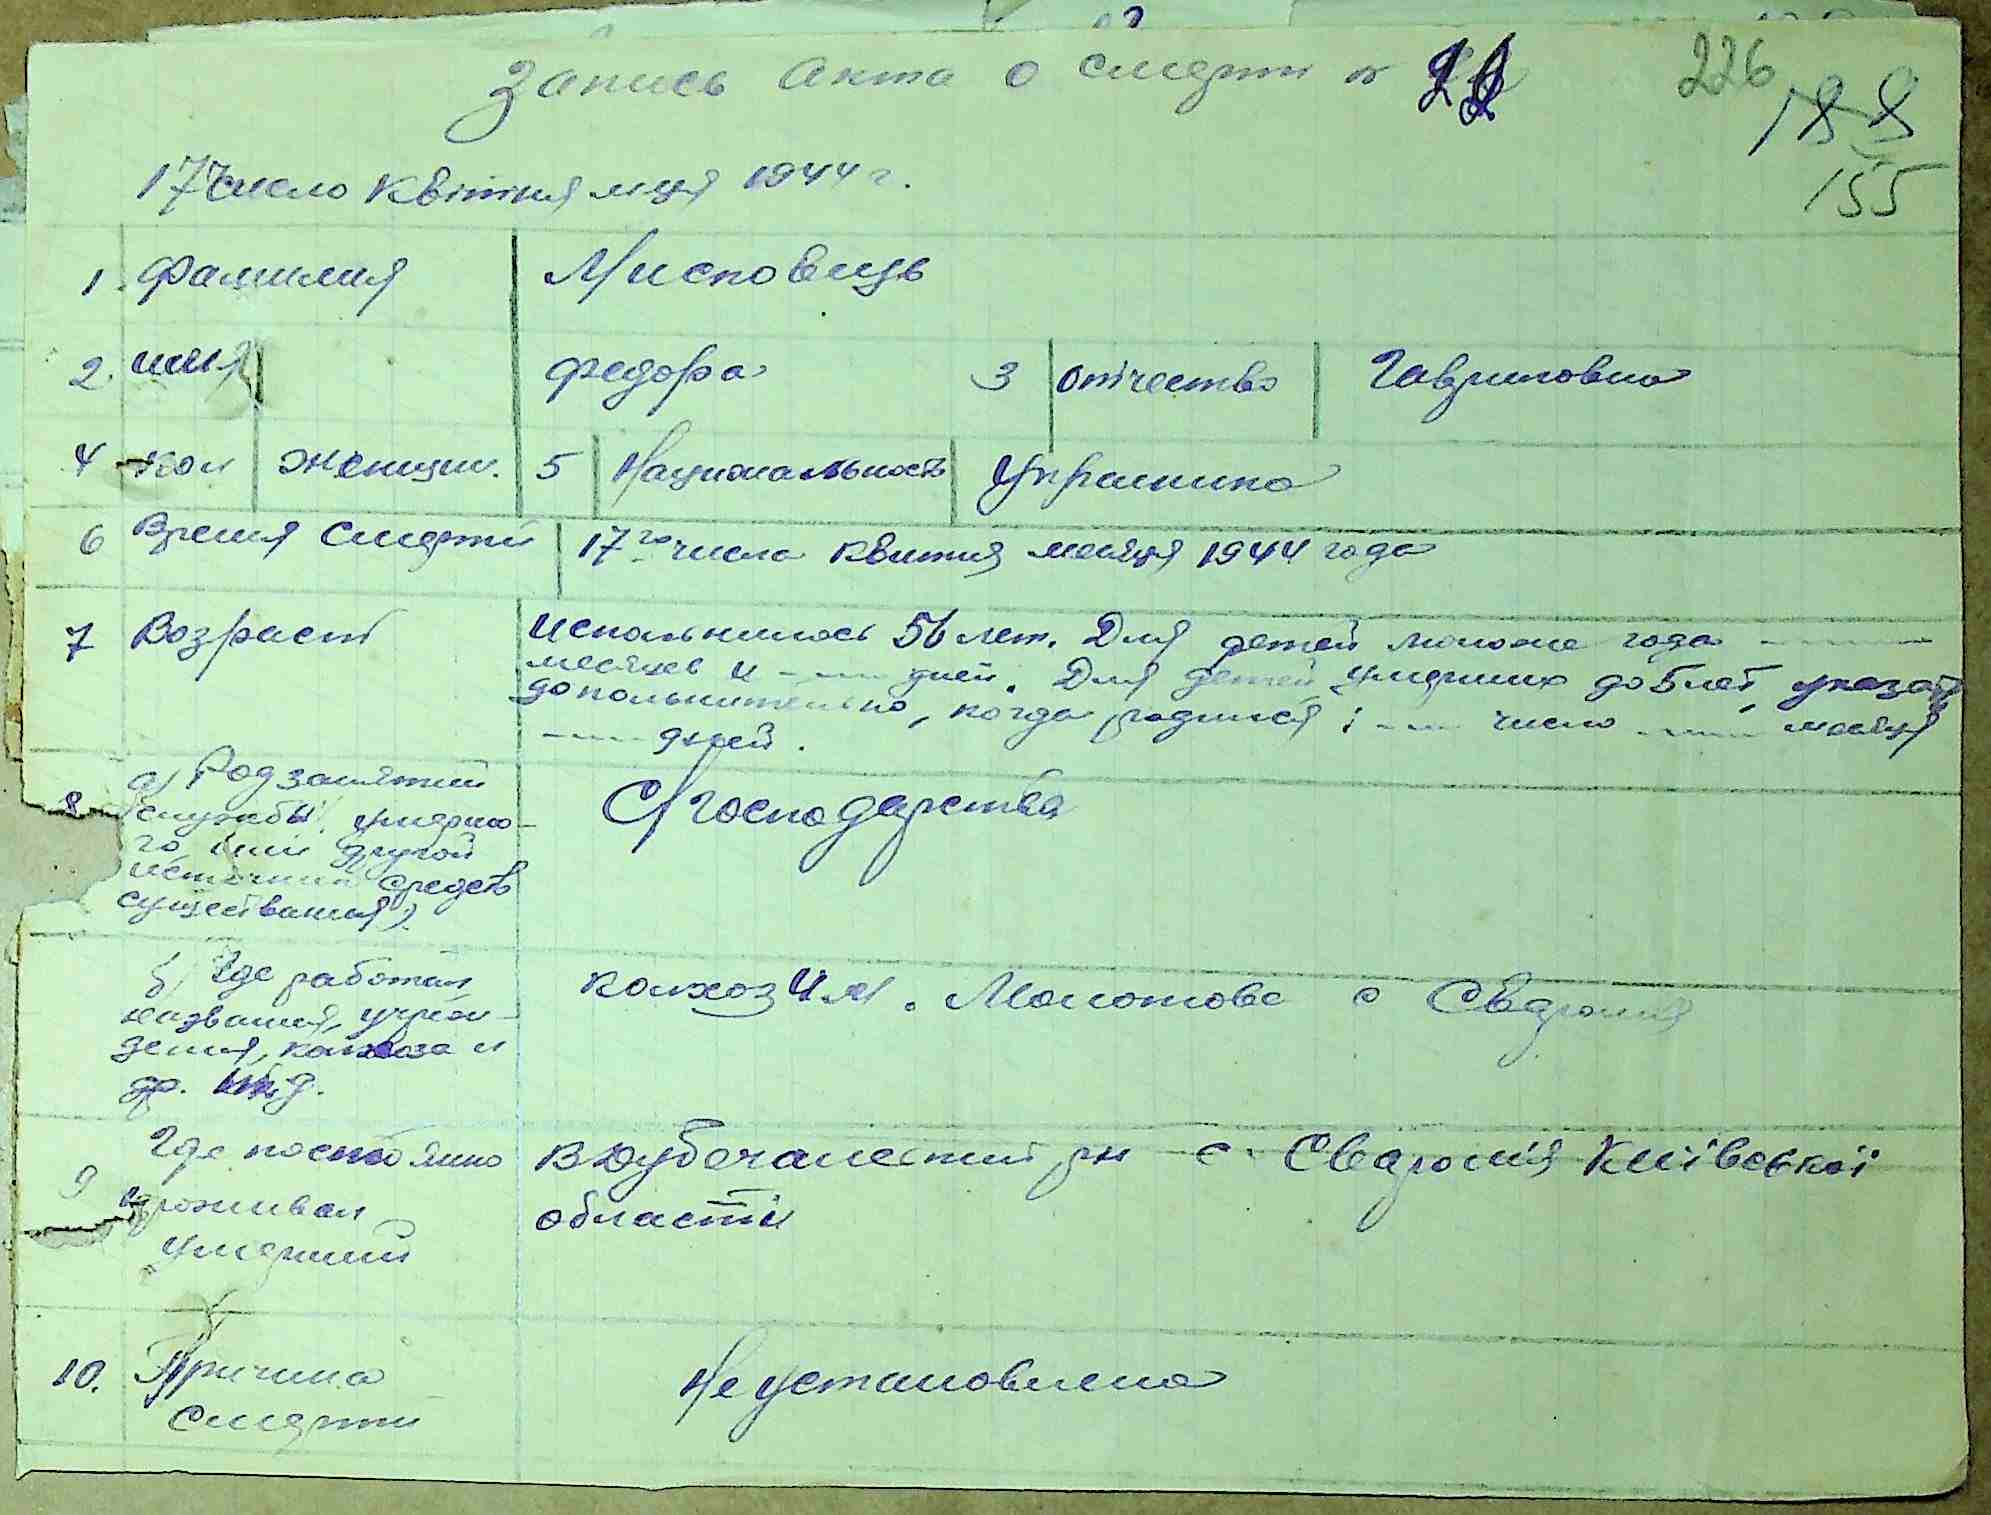 Запись акта о смерти № 22
226
188
155
17 число квітня м-ця 1944 г.
1. Фамилия Мисловець
2. имя Федора 3 отчество Гавриловна
4 пол женщин. 5 Национальность Украинка
6 Время смерти 17го числа квитня месяця 1944 года
7 Возраст Испольнилось 56 лет. Для детей моложе года
месяцев и дней. Для детей умерших до 5 лет, указать
дополнительно, когда родился: число месяця
дней.
8 а) Род занятий
(службы) умершо-
го или другой
источник средств
существания).
С/господарства
б) Где работал
название, учреж-
дения, колхоза и
др. и т.д.
колхоз Им. Молотова с Свароміє
9 Где постоянно
проживал
умерший
В Дубечанский рн с. Свароміє Київської
області
10. Причина
смерти
Не установлена